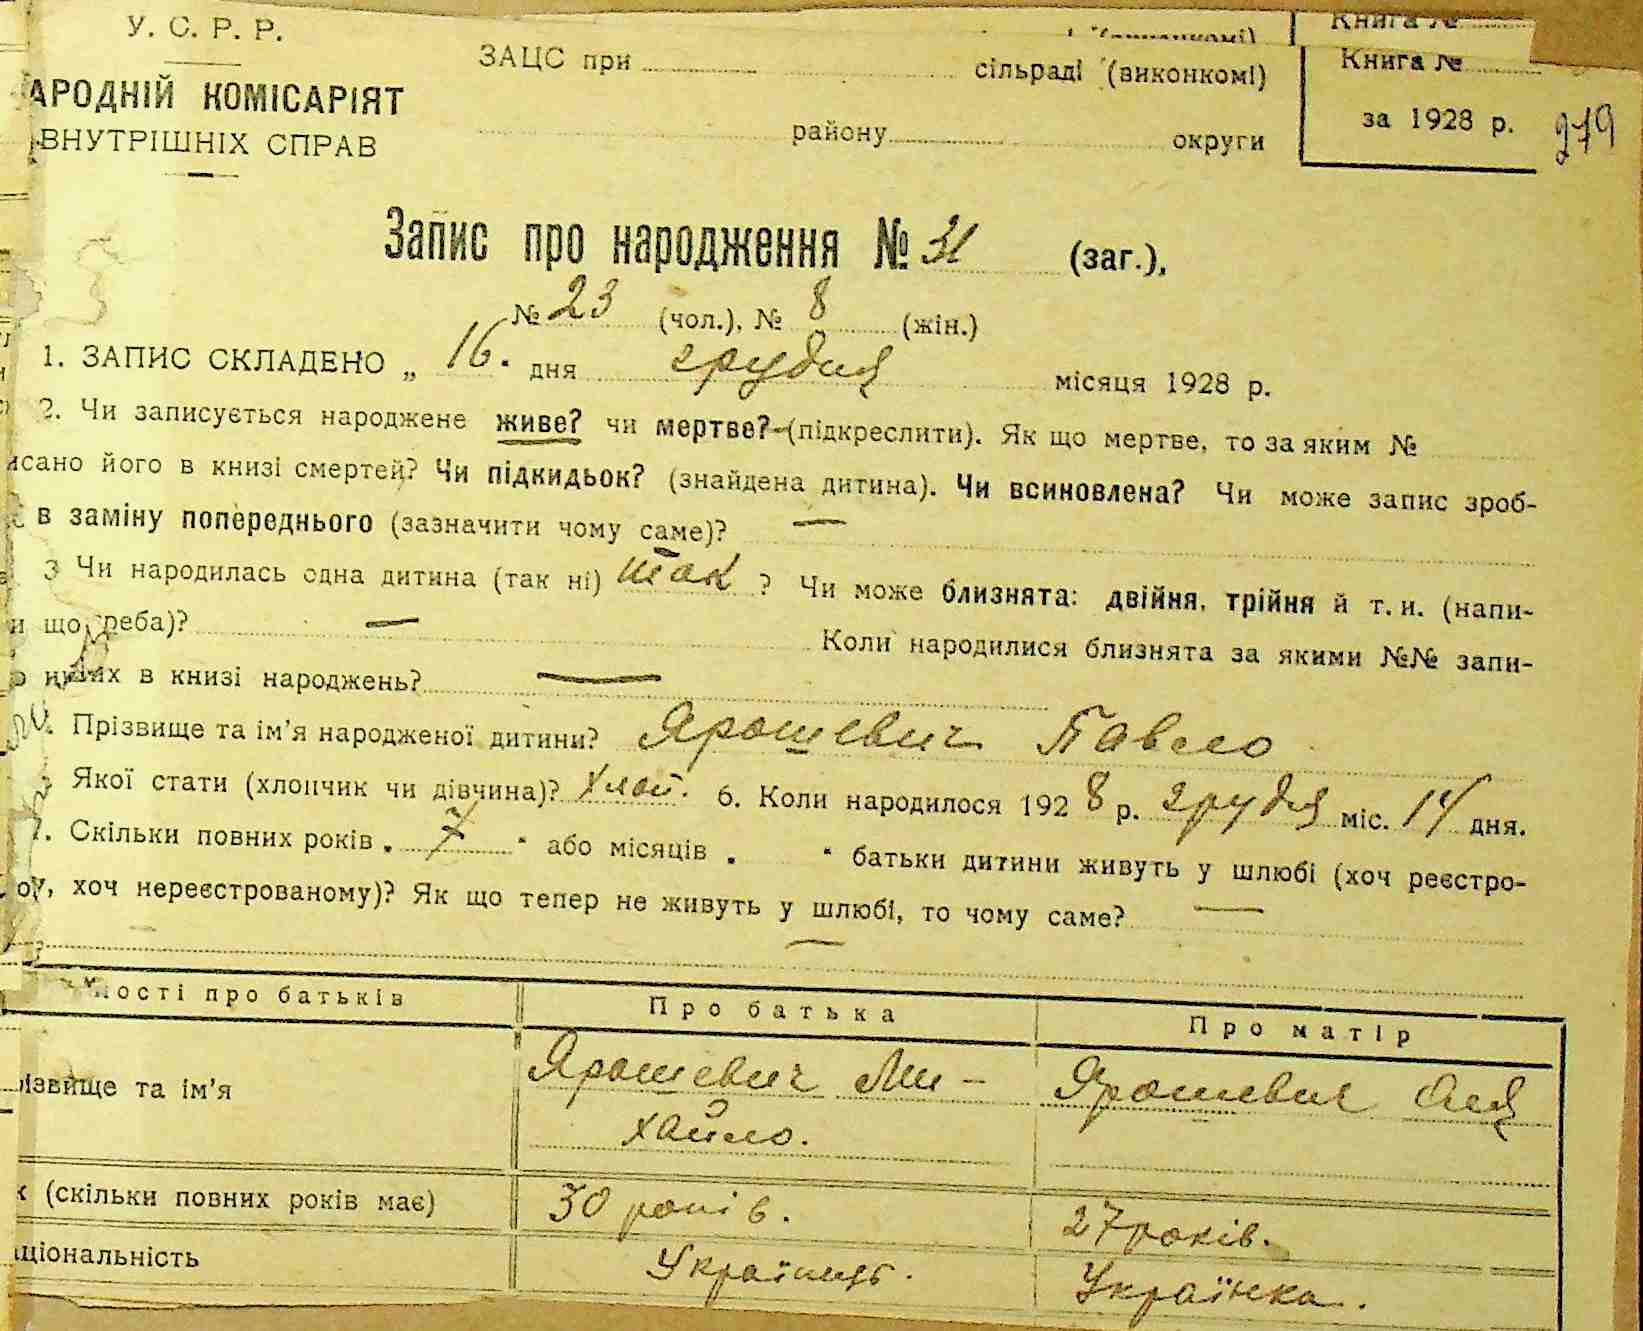 У. С. Р. Р.
АРОДНІЙ КОМІСАРІЯТ
ВНУТРІШНІХ СПРАВ
Книга №
ЗАЦС при сільраді (виконкомі)
району округи
Книга №
за 1928 р.
279
Запис про народження № 31 (заг.),
№ 23 (чол.), № 8 (жін.)
1. ЗАПИС СКЛАДЕНО „ 16. дня грудня місяця 1928 р.
2. Чи записується народжене живе? чи мертве? (підкреслити). Як що мертве, то за яким №
исано його в книзі смертей? Чи підкидьок? (знайдена дитина). Чи всиновлена? Чи може запис зроб-
в заміну попереднього (зазначити чому саме)? —
3 Чи народилась одна дитина (так ні) так ? Чи може близнята: двійня, трійня й т. и. (напи-
и що треба)? — Коли народилися близнята за якими №№ запи-
инших в книзі народжень? —
Прізвище та ім'я народженої дитини? Ярошевич Павло
Якої стати (хлопчик чи дівчина)? хлоп. 6. Коли народилося 1928 р. грудня міс. 14 дня.
7. Скільки повних років „ 7 “ або місяців „ “ батьки дитини живуть у шлюбі (хоч реєстро-
му, хоч нереєстрованому)? Як що тепер не живуть у шлюбі, то чому саме? —
—
мості про батьків Про батька Про матір
різвище та ім'я Ярошевич Ми- Ярошевич
хайло.
к (скільки повних років має) 30 років. 27 років.
аціональність Українець. Українка.